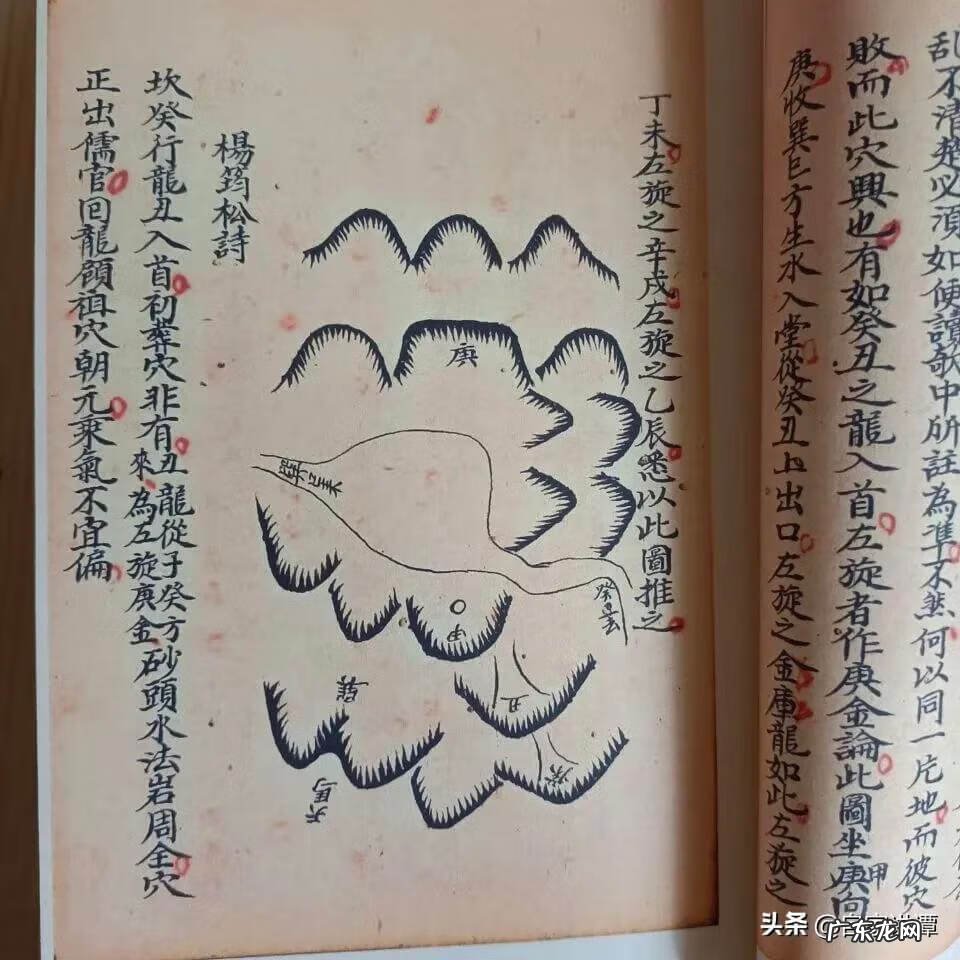 亂不清趙必須如便讀歌中所註為準不然何以同一片地而彼穴
敗而此穴興也有如癸丑之龍入首左旋者作庚金論此圖坐庚向甲
庚收巽巳方生水入堂從癸丑上出口左旋之金庫龍如此左旋之
丁未左旋之辛戌左旋之乙辰悉以此圖推之
庚
巽
癸丑去
甲
丑
癸
天馬
楊筠松詩
坎癸行龍丑入首初葬穴非有丑龍從子癸方砂頭水法岩周全穴
來為左旋庚金
正出儒官回龍顧祖穴朝元乘氣不宜偏
头条
广东龙网